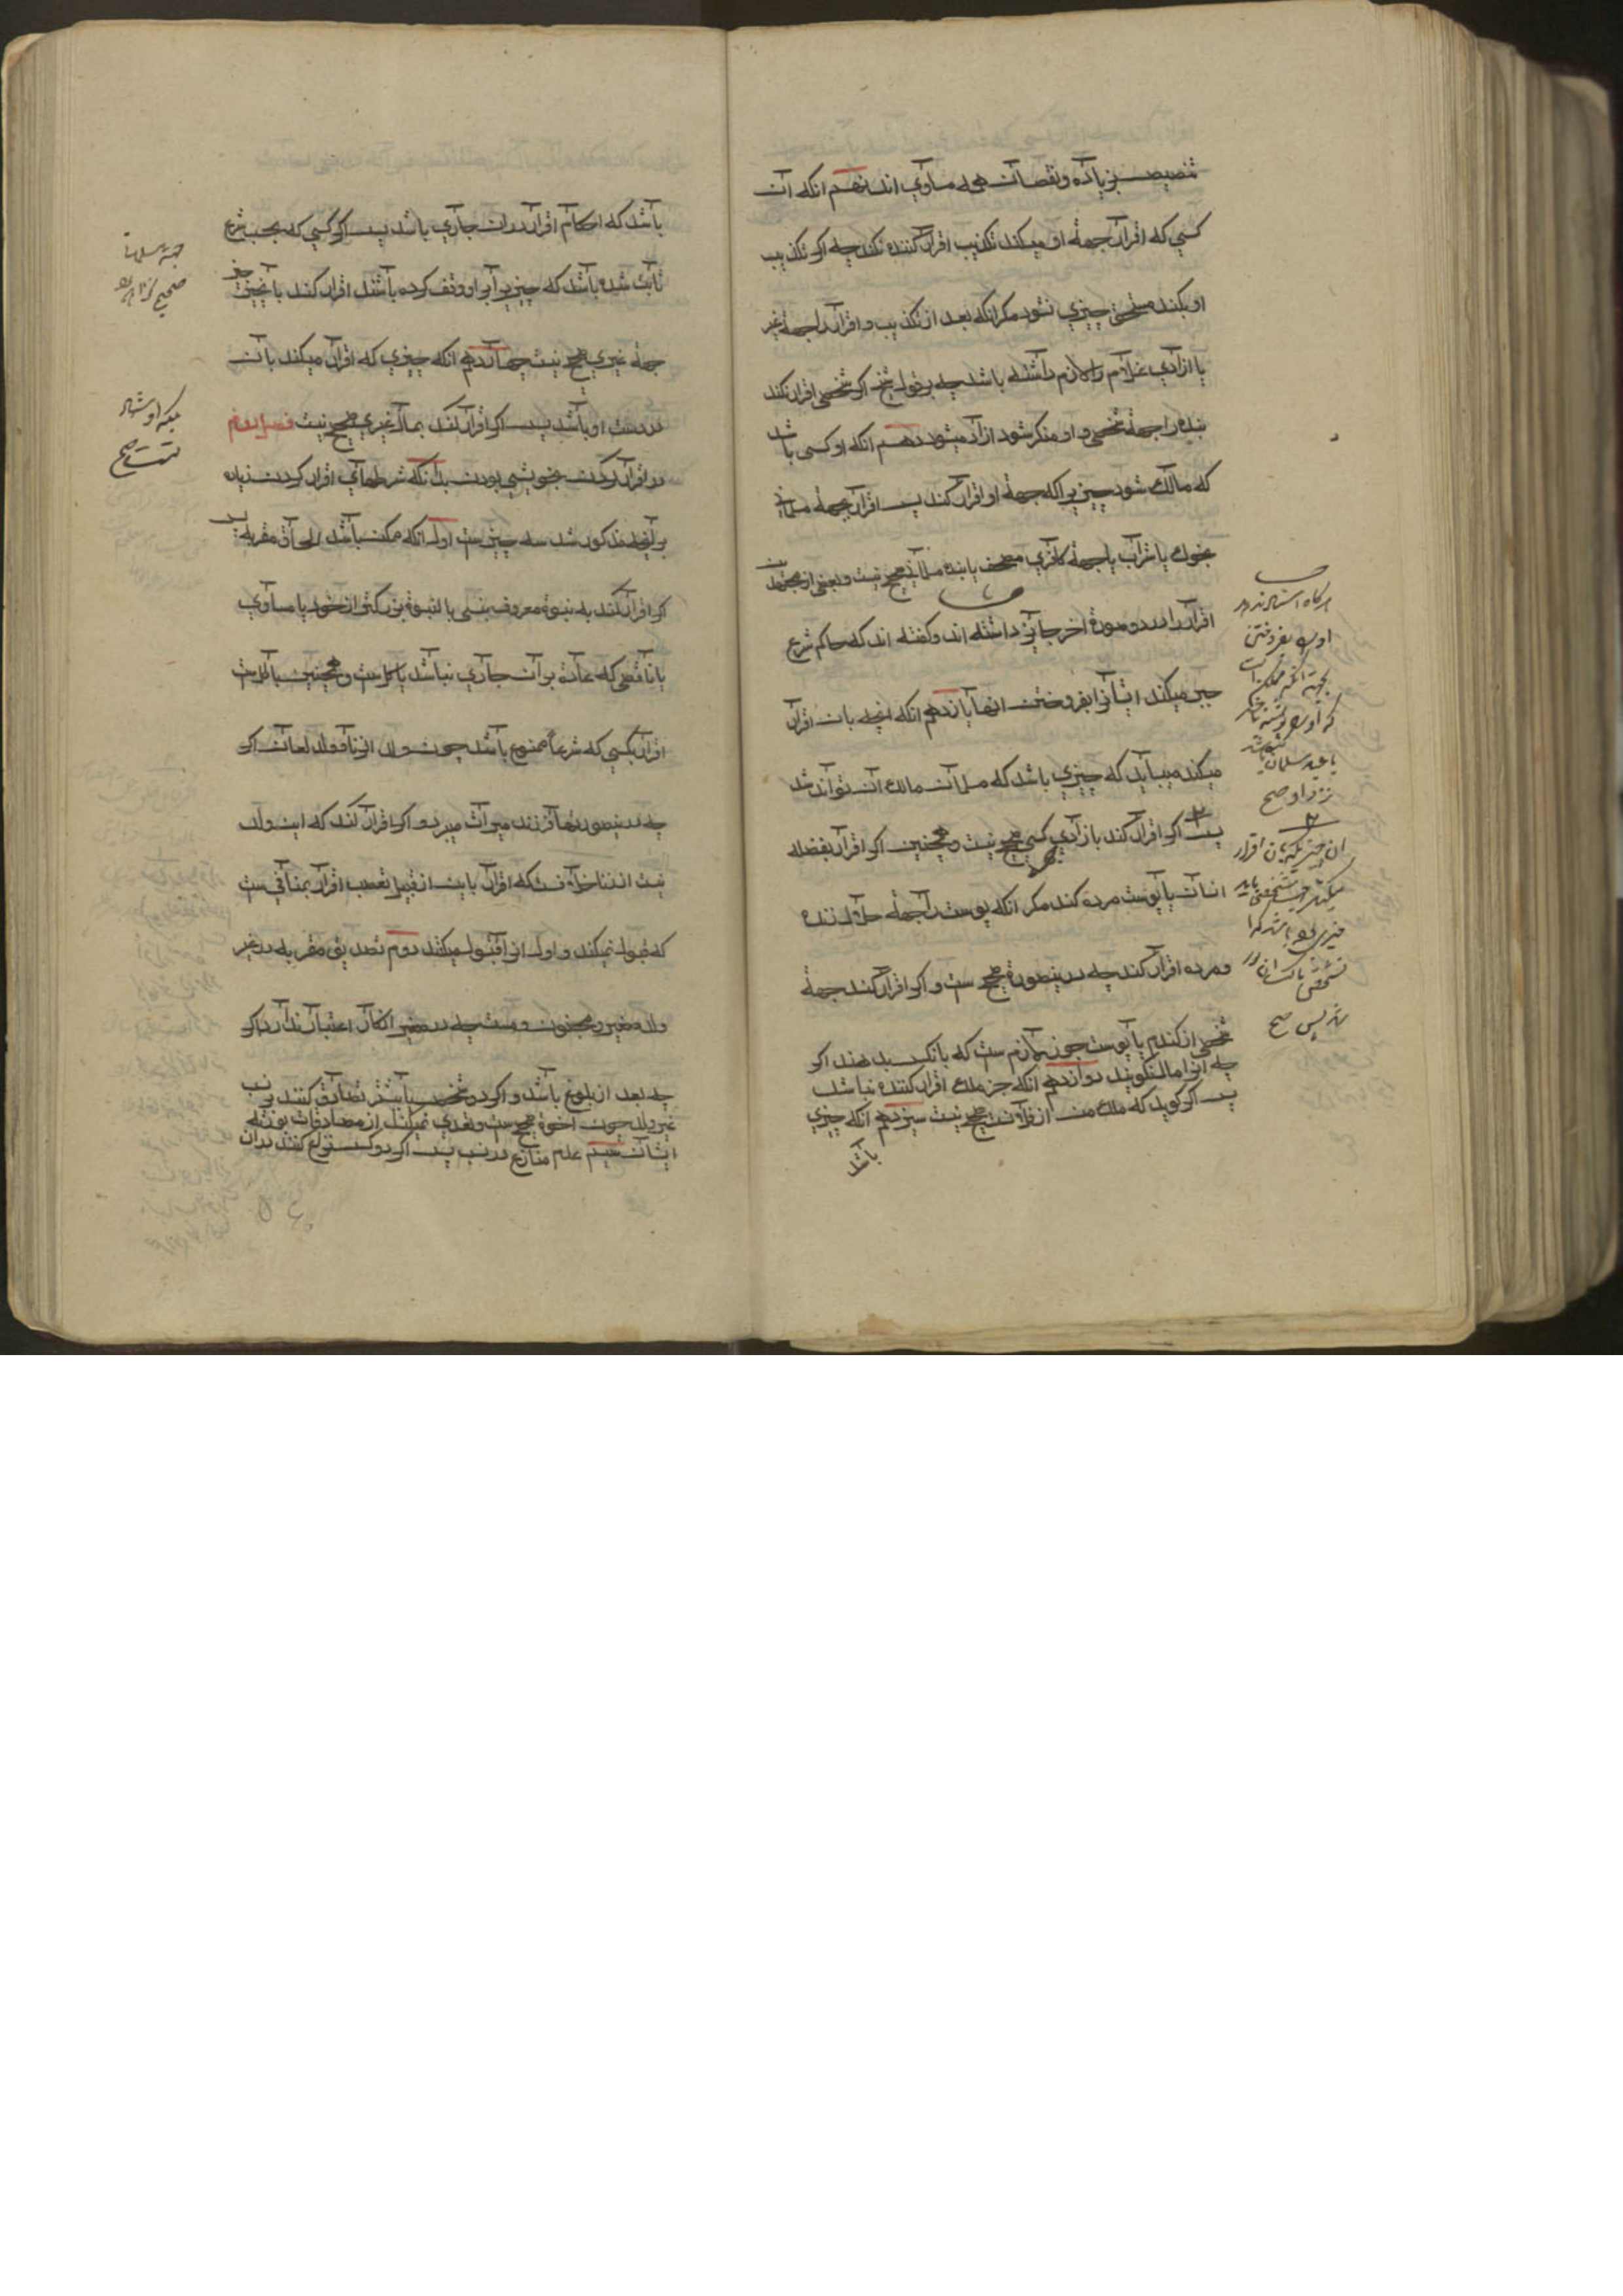 تنصیص بزیاده و نقصان همه مساوی اند نهم انکه ان
کسی که اقرار جهة او میکند تکذیب اقرار کننده نکند چه اکر تکذیب
او بکند مستحق چیزی نشود مکر انکه بعد از تکذیب و اقرار را جهة غیر
یا ازادی غلام را لازم داشته باشد چه بر قول شیخ اکر شخصی اقرار کند
بنده را جهة شخصی و او منکر شود ازاد میشود دهم انکه او کسی باشد
که مالک شود چیزیرا که جهة او اقرار کند پس اقرار جهة مسلمانی
بخوک یا شراب یا جهة کافری مصحف یا بنده مسلمان صحیح نیست و بعضی از مجتهدین
اقرار را در دو صورة اخر جایز داشته اند و کفته اند که حاکم شرع
جبر میکند ایشانرا بفروختن انها یازدهم انکه انچه بان اقرار
میکند میباید که چیزی باشد که مسلمان مالک ان تواند شد
پس اکر اقرار کند بازادی کسی صحیح نیست و همچنین اکر اقرار بفضله
انسان یا پوست مرده کند مکر انکه پوست را جهة حلال زنده
و مرده اقرار کند چه درینصورة صحیح ست و اکر اقرار کند جهة
شخصی از کندم یا پوست جوز لازم ست که بانکس بدهند اکر
چه انرا مال نکویند دوازدهم انکه جز ملک اقرار کننده نباشد
پس اکر کوید که ملک من از فلان ست صحیح نیست سیزدهم انکه چیزی
باشد
نزد او صح
پس صح
باشد که احکام اقرار در ان جاری باشد پس اکر کسی که بحسب شرع
ثابت شده باشد که چیزیرا بر او وقف کرده باشند اقرار کند بانچیز
جهة غیری صحیح نیست چهاردهم انکه چیزی که اقرار میکند بان
در دست او باشد پس اکر اقرار کند بمال غیری صحیح نیست فصل دوم
در اقرار کردن بخویشی بودن بدانکه شرطهای اقرار کردن زیاده
بر انچه مذکور شد سه چیزست اول انکه ممکن باشد الحاق مقر به پس
اکر اقرار کند به بنوة معروف نسبی یا ببنوة بزرکتر از خود یا مساوی
یا ناقصی که عادة بر ان جاری نباشد باطل ست و همچنین باطل ست
اقرار بکسی که شرعا ممنوع باشد چون ولد الزنا و ولد لعان اکر
چه درینصورتها فرزند میراث میبرد و اکر اقرار کند که این ولد
نیست از زنا خلاف ست که اقرار باین از قبیل تعقیب اقرار بمنافی ست
که قبول نمیکند و اول انرا قبول میکند دوم تصدیق مقر به در غیر
ولد صغیر و مجنون و میت چه در صغیر انکار اعتبار ندارد اکر
چه بعد از بلوغ باشد و اکر دو شخص باشند تصادق کنند بر نسب
غیر ولد چون اخوة صحیح ست و تعدی نمیکند از مصادقات بورثه
ایشان سیم عدم منازع در نسب پس اکر دو کس نزاع کنند در ان